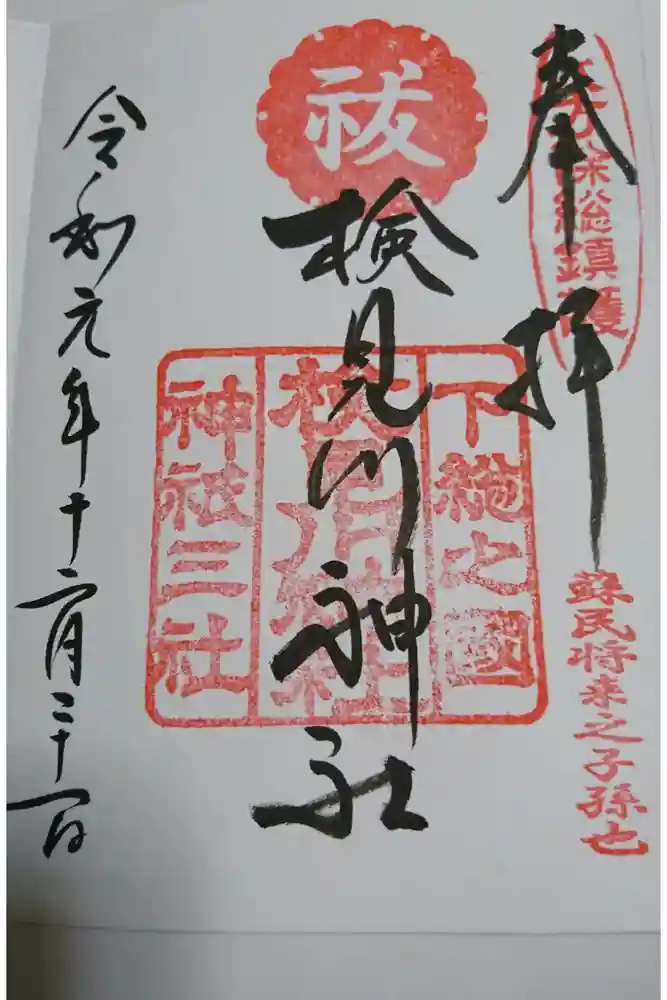 奉拝
除総鎮護
蘇民将来之子孫也
祓
検見川神社
下総之國
検見川神社
神祇三社
令和元年十二月二十一日